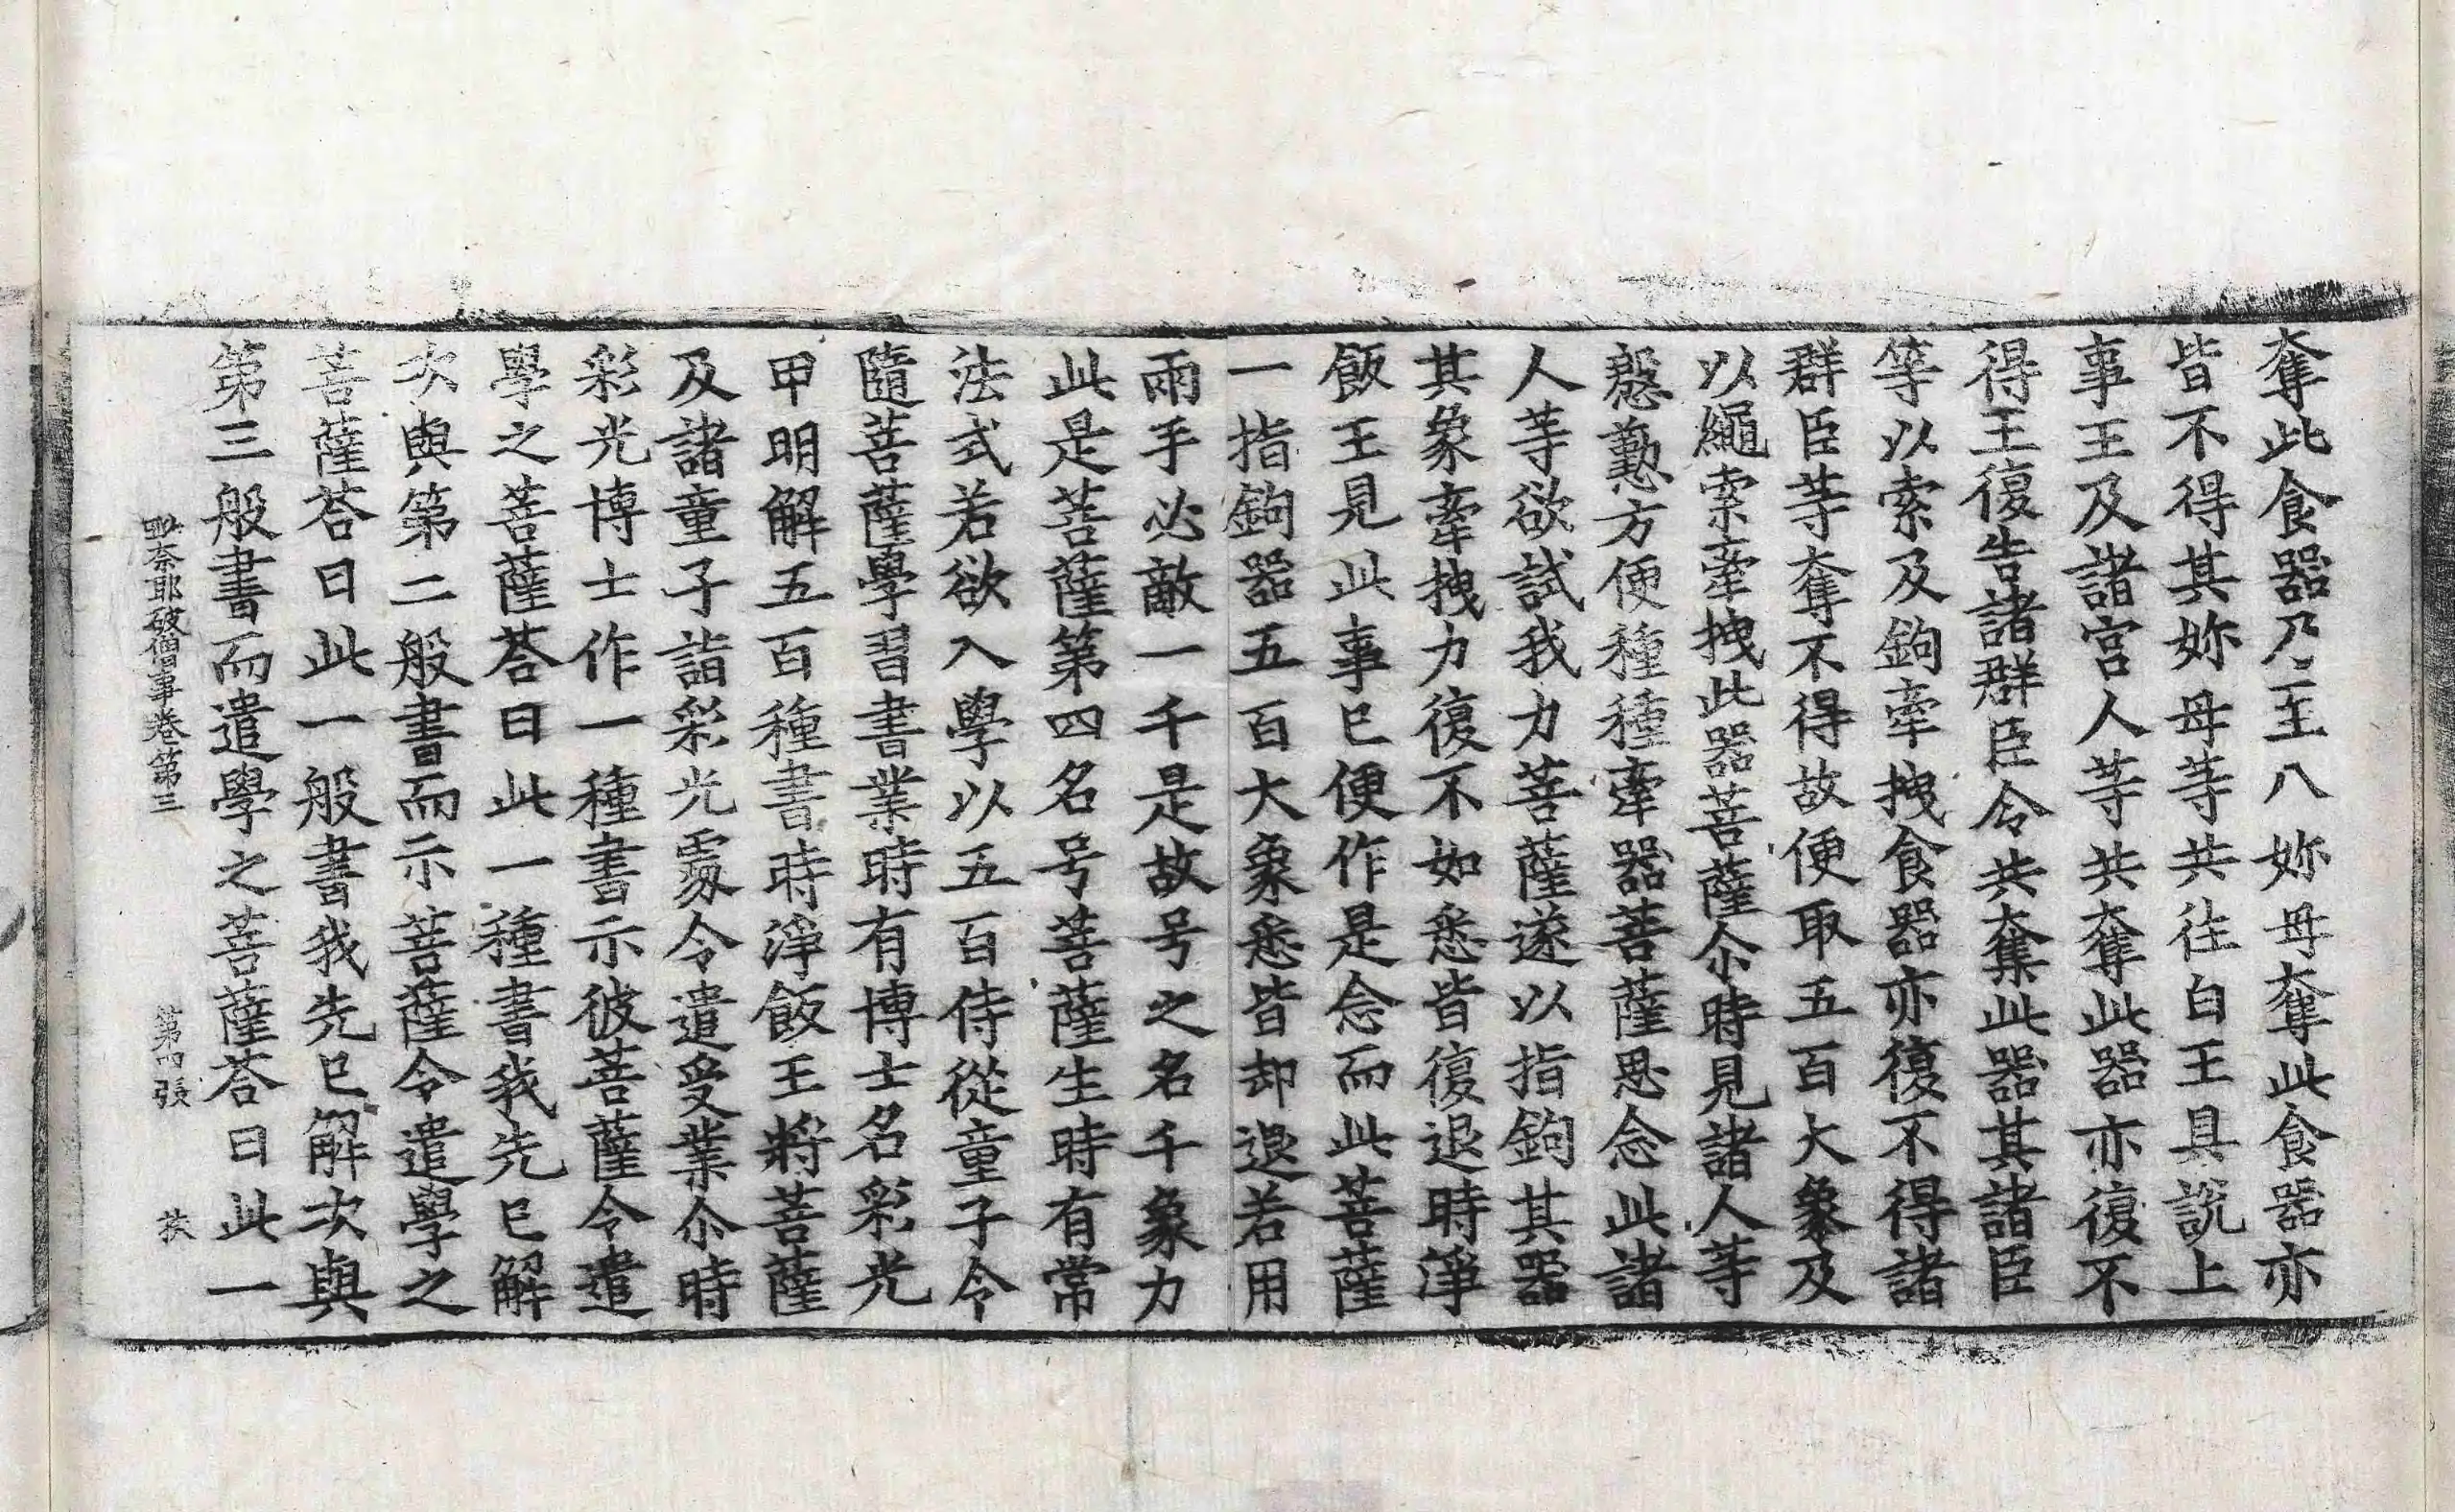 奪此食器乃至八妳母奪此食器亦
皆不得其妳母等共往白王具說上
事王及諸宮人等共奪此器亦復不
得王復告諸群臣令共奪此器其諸臣
等以索及鉤牽拽食器亦復不得諸
群臣等奪不得故便取五百大象及
以繩索牽拽此器菩薩尒時見諸人等
慇懃方便種種牽器菩薩思念此諸
人等欲試我力菩薩遂以指鉤其器
其象牽拽力復不如悉皆復退時淨
飯王見此事已便作是念而此菩薩
一指鉤器五百大象悉皆却退若用
兩手必敵一千是故号之名千象力
此是菩薩第四名号菩薩生時有常
法式若欲入學以五百侍從童子令
隨菩薩學習書業時有博士名彩光
甲明解五百種書時淨飯王將菩薩
及諸童子詣彩光處令遣受業尒時
彩光博士作一種書示彼菩薩令遣
學之菩薩荅曰此一種書我先已解
次與第二般書而示菩薩令遣學之
菩薩荅曰此一般書我先已解次與
第三般書而遣學之菩薩荅曰此一
毗奈耶破僧事卷第三 第四張 扶